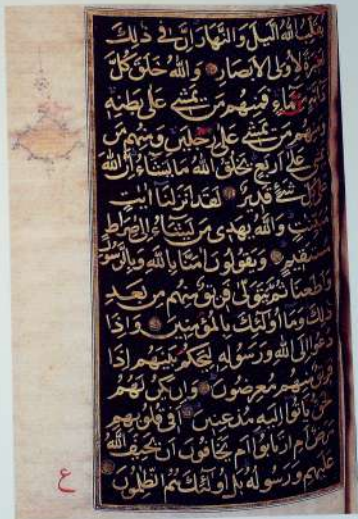 يقلب الله اليل والنهار ان في ذلك
لعبرة لاولى الابصار والله خلق كل
دابة من ماء فمنهم من يمشى على بطنه
ومنهم من يمشى على رجلين ومنهم من
يمشى على اربع يخلق الله ما يشاء ان الله
على كل شئ قدير لقد انزلنا ايت
مبينت والله يهدى من يشاء الى صراط
مستقيم ويقولون امنا بالله وبالرسول
واطعنا ثم يتولى فريق منهم من بعد
ذلك وما اولئك بالمؤمنين واذا
دعوا الى الله ورسوله ليحكم بينهم اذا
فريق منهم معرضون وان يكن لهم
الحق ياتوا اليه مذعنين افى قلوبهم
مرض ام ارتابوا ام يخافون ان يحيف الله
عليهم ورسوله بل اولئك هم الظلمون
ع